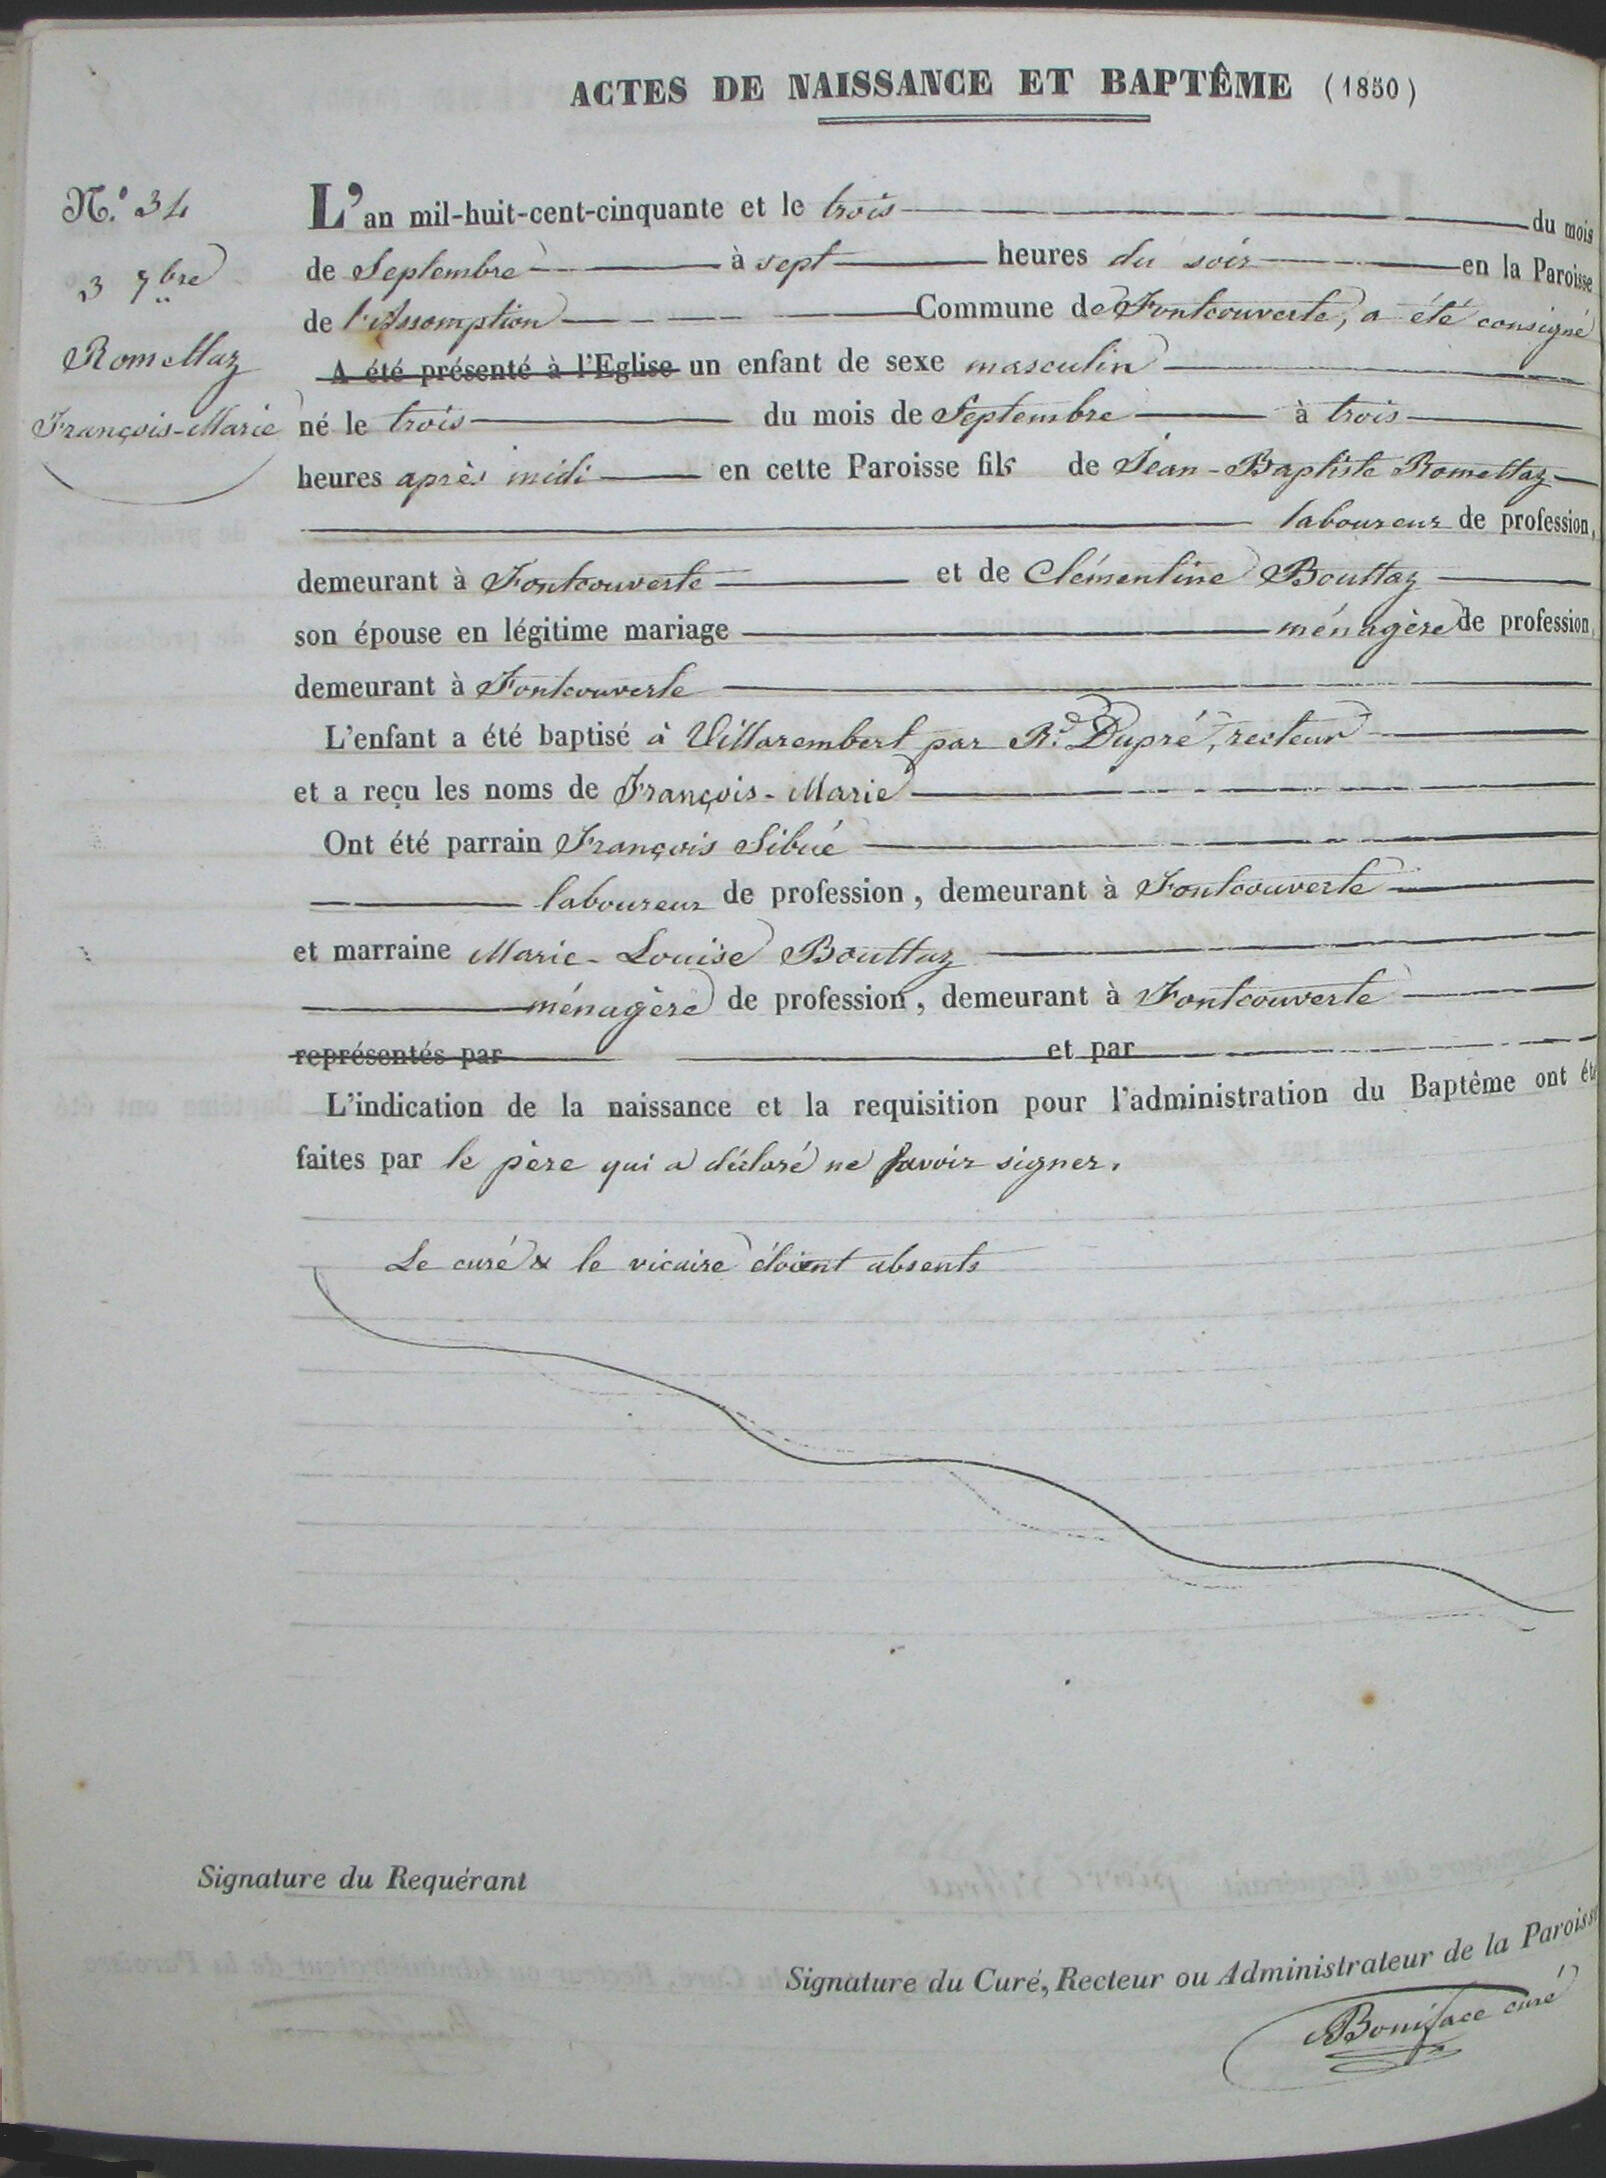 ACTES DE NAISSANCE ET BAPTÊME (1850)
N.º 34
3 7bre
Romettaz
François-Marie
L'an mil-huit-cent-cinquante et le trois du mois
de Septembre à sept heures du soir en la Paroisse
de l'Assomption Commune de Fontcouverte, a été consigné
A été présenté à l'Eglise un enfant de sexe masculin
né le trois du mois de Septembre à trois
heures après midi en cette Paroisse fils de Jean-Baptiste Romettaz
laboureur de profession,
demeurant à Fontcouverte et de Clémentine Bouttaz
son épouse en légitime mariage ménagère de profession,
demeurant à Fontcouverte
L'enfant a été baptisé à Villarembert par Rd Dupré, recteur
et a reçu les noms de François-Marie
Ont été parrain François Sibué
laboureur de profession, demeurant à Fontcouverte
et marraine Marie-Louise Bouttaz
ménagère de profession, demeurant à Fontcouverte
représentés par et par
L'indication de la naissance et la requisition pour l'administration du Baptême ont été
faites par le père qui a déclaré ne savoir signer.
Le curé & le vicaire étoient absents
Signature du Requérant
Signature du Curé, Recteur ou Administrateur de la Paroisse
Boniface curé